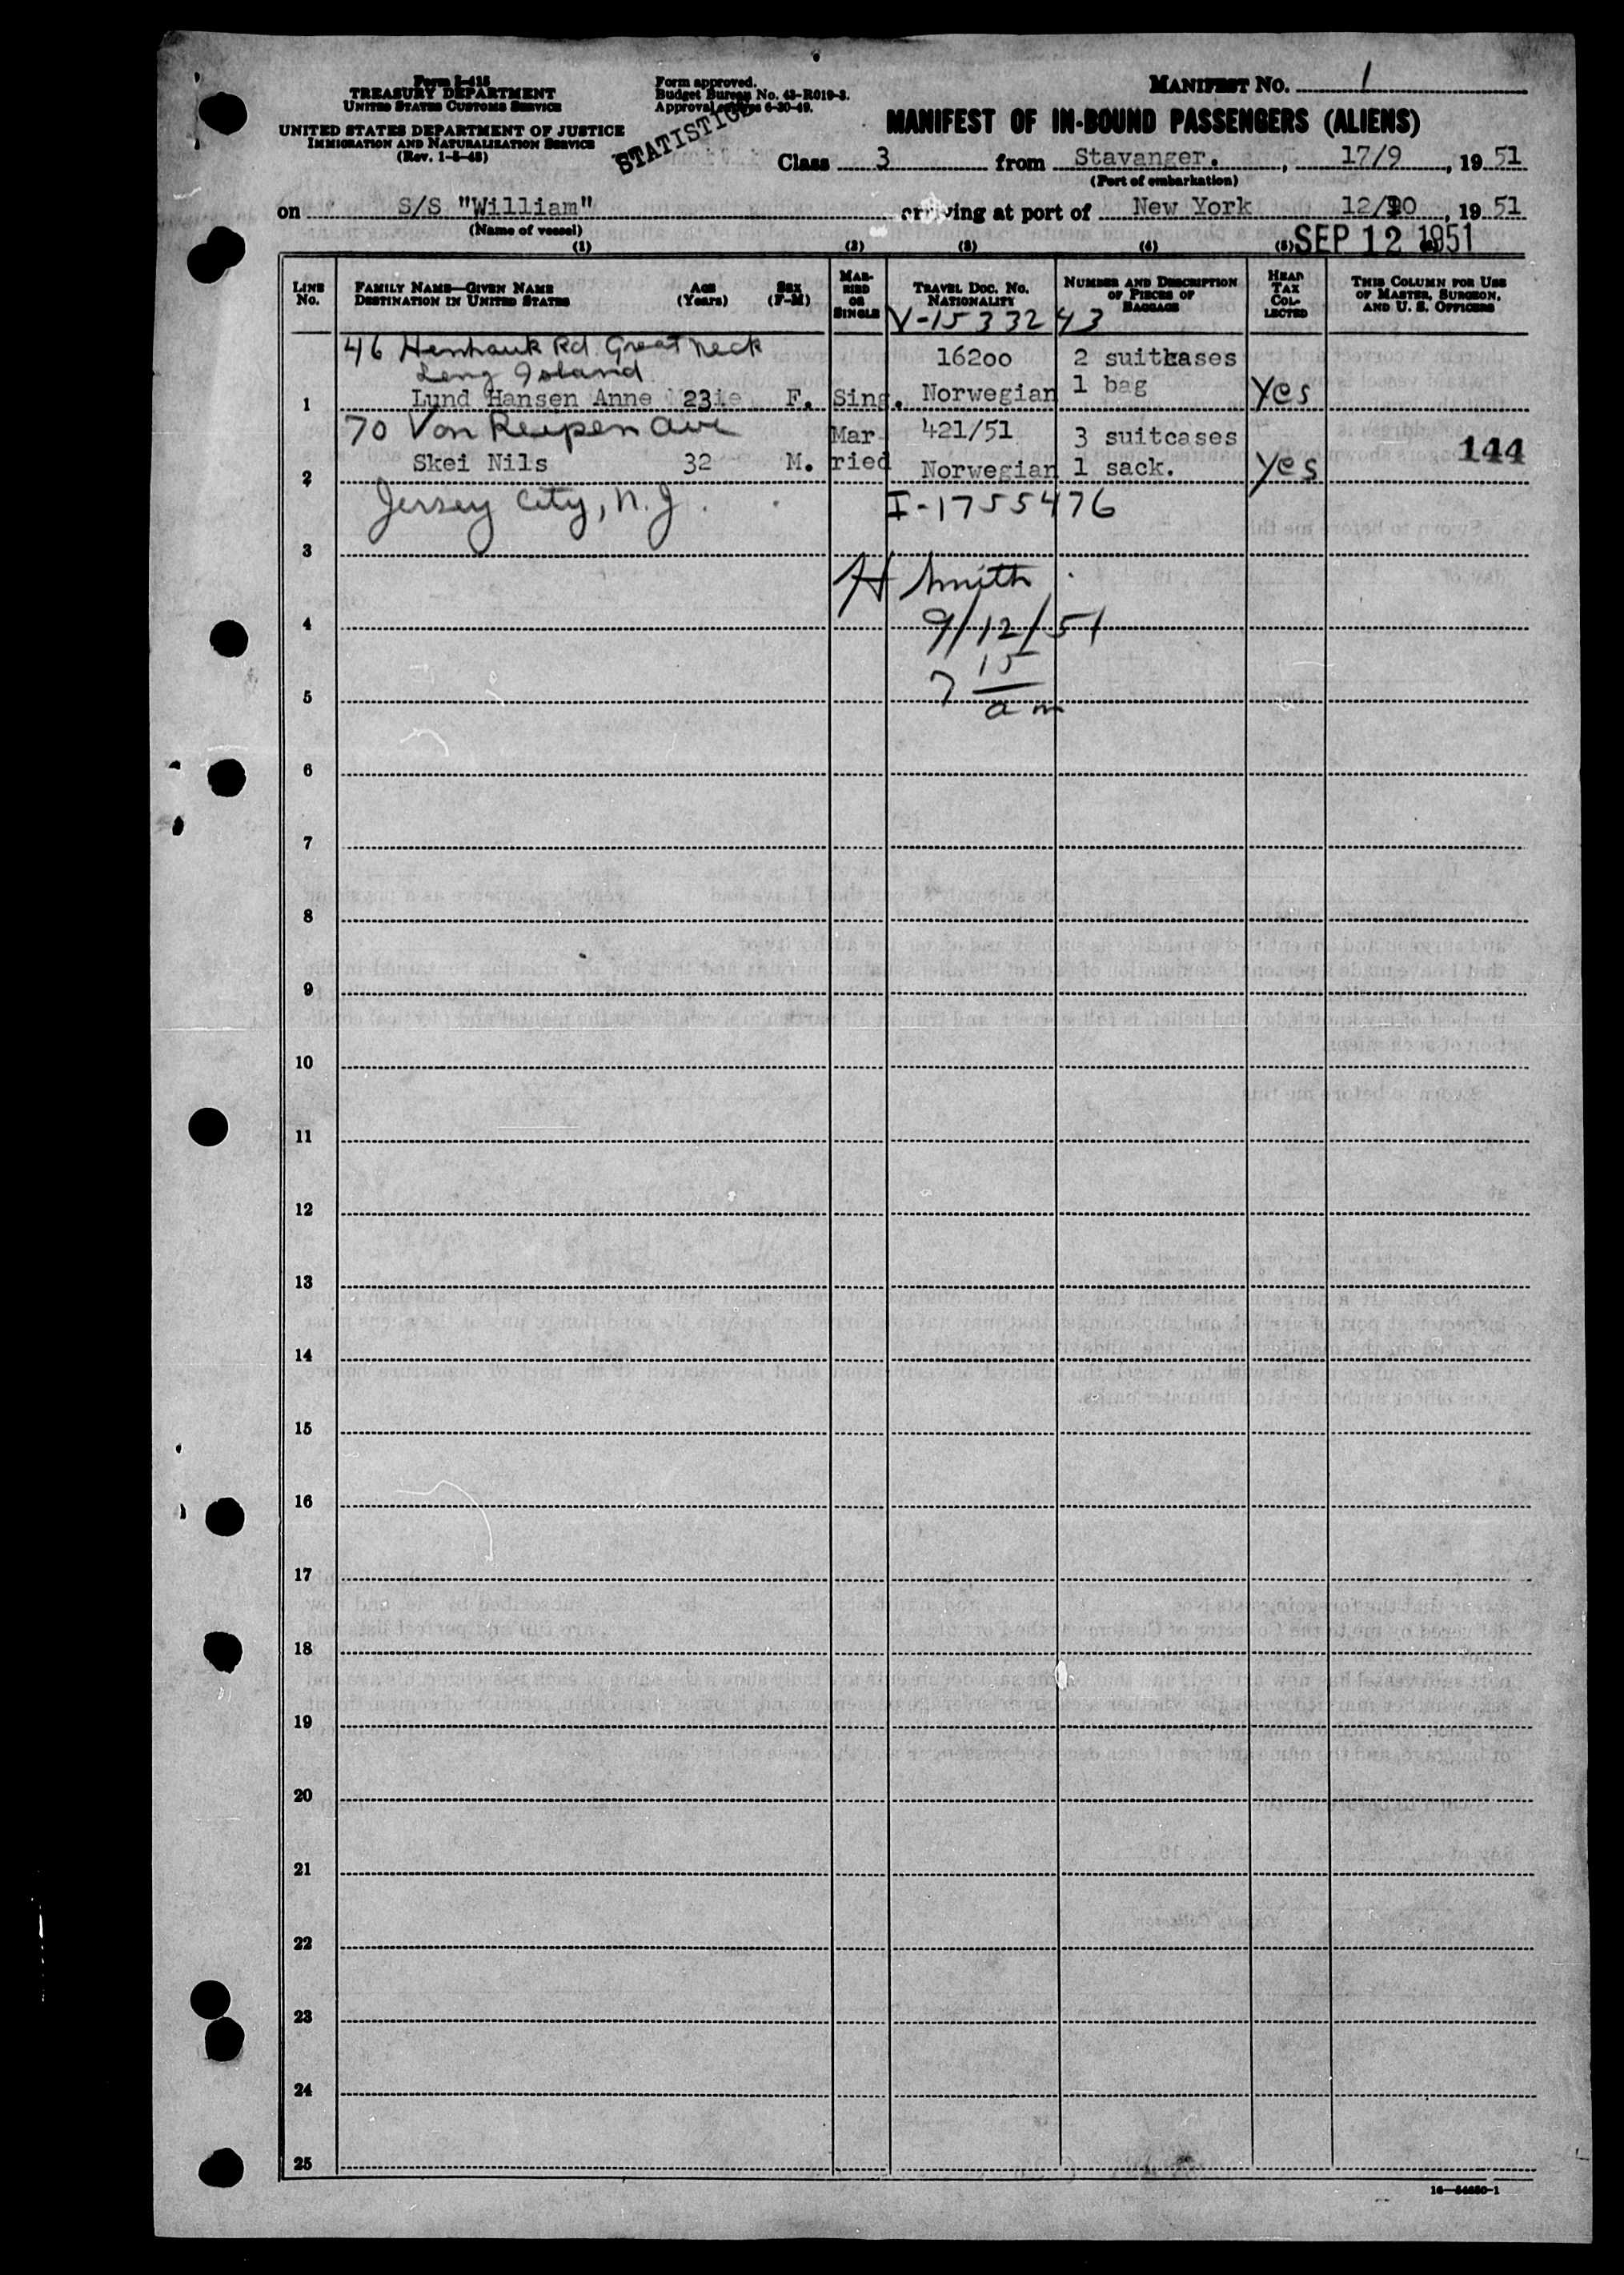 Form I-415
TREASURY DEPARTMENT
UNITED STATES CUSTOMS SERVICE
UNITED STATES DEPARTMENT OF JUSTICE
IMMIGRATION AND NATURALIZATION SERVICE
(Rev. 1-5-48)
Form approved.
Budget Bureau No. 43-R019-3.
Approval expires 6-30-49.
STATISTICS
MANIFEST No. 1
MANIFEST OF IN-BOUND PASSENGERS (ALIENS)
Class 3 from Stavanger. , 17/9 , 19 51
(Port of embarkation)
on S/S "William" arriving at port of New York 12/ , 19 51
(Name of vessel)
SEP 12 1951
(1) (2) (3) (4) (5)
LINE No. FAMILY NAME—GIVEN NAME DESTINATION IN UNITED STATES AGE (Years) SEX (F-M) MARRIED OR SINGLE TRAVEL DOC. NO. NATIONALITY NUMBER AND DESCRIPTION OF PIECES OF BAGGAGE HEAD TAX COLLECTED THIS COLUMN FOR USE OF MASTER, SURGEON, AND U. S. OFFICERS
V-1533243
46 Rd. Great Neck 16200 2 suitcases
Long Island
1 Lund Hansen Anne 23 F. Sing. Norwegian 1 bag Yes
70 Von Reipen Ave Mar 421/51 3 suitcases
2 Skei Nils 32 M. ried Norwegian 1 sack. Yes 144
Jersey City, N.J. I-1755476
3
H Smith
4 9/12/51
5 7 15/am
6
7
8
9
10
11
12
13
14
15
16
17
18
19
20
21
22
23
24
25